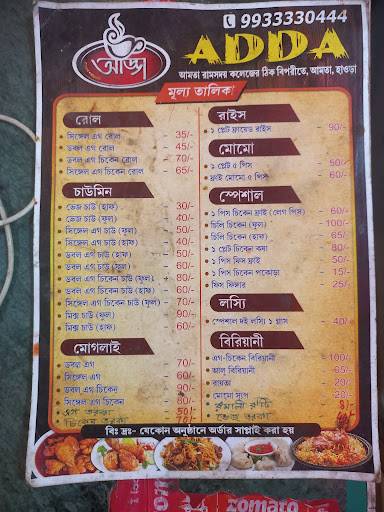 9933330444
আড্ডা
ADDA
আমতা রামসদয় কলেজের ঠিক বিপরীতে, আমতা, হাওড়া
মূল্য তালিকা
রোল
সিঙ্গেল এগ রোল - 35/-
ডবল এগ রোল - 45/-
ডবল এগ চিকেন রোল - 70/-
সিঙ্গেল এগ চিকেন রোল - 65/-
চাউমিন
ভেজ চাউ (হাফ) - 30/-
ভেজ চাউ (ফুল) - 40/-
সিঙ্গেল এগ চাউ (ফুল) - 50/-
সিঙ্গেল এগ চাউ (হাফ) - 40/-
ডবল এগ চাউ (হাফ) - 50/-
ডবল এগ চাউ (ফুল) - 60/-
ডবল এগ চিকেন চাউ (ফুল) - 80/-
ডবল এগ চিকেন চাউ (হাফ) - 60/-
সিঙ্গেল এগ চিকেন চাউ (ফুল) - 70/-
মিক্স চাউ (ফুল) - 90/-
মিক্স চাউ (হাফ) - 60/-
মোগলাই
ডবল এগ - 70/-
সিঙ্গেল এগ - 60/-
ডবল এগ-চিকেন - 90/-
সিঙ্গেল এগ চিকেন - 80/-
এগ তরকা - 50/-
চিকেন তরকা
রাইস
১ প্লেট ফ্রায়েড রাইস - 90/-
মোমো
১ প্লেট ৫ পিস - 50/-
ফ্রাই মোমো ৫ পিস - 60/-
স্পেশাল
১ পিস চিকেন ফ্রাই (লেগ পিস) - 60/-
চিলি চিকেন (ফুল) - 100/-
চিলি চিকেন (হাফ) - 65/-
১ প্লেট চিকেন কষা - 80/-
১ পিস ফিস ফ্রাই - 50/-
১ পিস চিকেন পকোড়া - 15/-
ফিস ফিঙ্গার - 25/-
লস্যি
স্পেশাল দই লস্যি ১ গ্লাস - 40/-
বিরিয়ানী
এগ-চিকেন বিরিয়ানী - 100/-
আলু বিরিয়ানী - 65/-
রায়তা - 20/-
মোমো স্যুপ - 20/-
রুমালী রুটি
ভেজ তরকা
বিঃ দ্রঃ- যেকোন অনুষ্ঠানে অর্ডার সাপ্লাই করা হয়
zomato